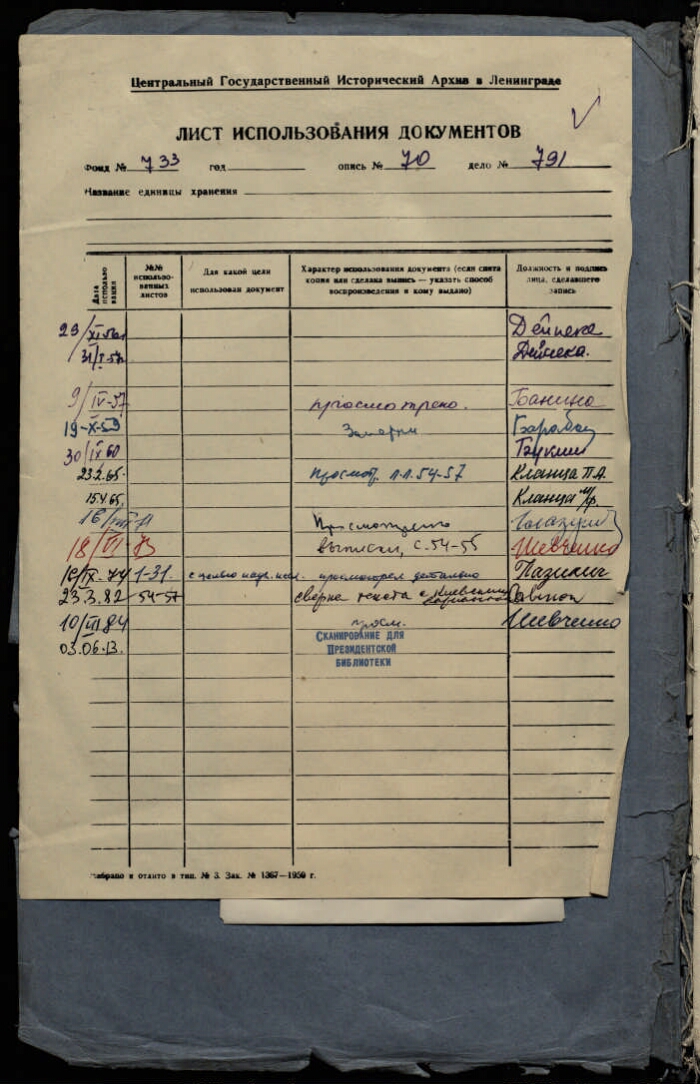 Центральный Государственный Исторический Архив в Ленинграде
ЛИСТ ИСПОЛЬЗОВАНИЯ ДОКУМЕНТОВ
Фонд № 733 год опись № 70 дело № 791
Название единицы хранения
Дата использования
№№ использованных листов
Для какой цели использован документ
Характер использования документа (если снята копия или сделана выпись — указать способ воспроизведения и кому выдано)
Должность и подпись лица, сделавшего запись
Дейнека
31/I-57 Дейнека.
9/IV-57 просмотрено. Банина
19-X-59
30/IX 60
23.2.65. просмотр. л.л. 54-57 Кланца П.А.
15.4.65. Кланца
Просмотрено
18/VI-73 выписки, с. 54-55 Шевченко
1-31. просмотрел детально
23.3.82 54-57 сверка текста с Киевским
10/VII 84 просм. Шевченко
03.06.13. Сканирование для
Президентской
библиотеки
Набрано и отпто в тип. № 3. Зак. № 1367—1950 г.